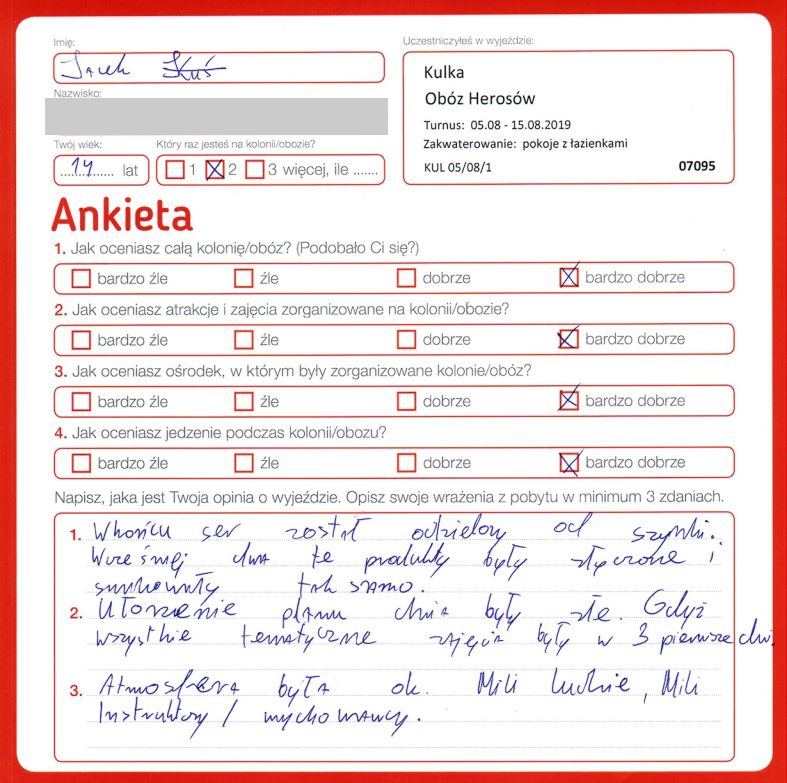 Imię:
Jacek Kuś
Nazwisko:
Twój wiek:
14 lat
Który raz jesteś na kolonii/obozie?
1 2 3 więcej, ile .......
Uczestniczyłeś w wyjeździe:
Kulka
Obóz Herosów
Turnus: 05.08 - 15.08.2019
Zakwaterowanie: pokoje z łazienkami
KUL 05/08/1 07095
Ankieta
1. Jak oceniasz całą kolonię/obóz? (Podobało Ci się?)
bardzo źle źle dobrze bardzo dobrze
2. Jak oceniasz atrakcje i zajęcia zorganizowane na kolonii/obozie?
bardzo źle źle dobrze bardzo dobrze
3. Jak oceniasz ośrodek, w którym były zorganizowane kolonie/obóz?
bardzo źle źle dobrze bardzo dobrze
4. Jak oceniasz jedzenie podczas kolonii/obozu?
bardzo źle źle dobrze bardzo dobrze
Napisz, jaka jest Twoja opinia o wyjeździe. Opisz swoje wrażenia z pobytu w minimum 3 zdaniach.
1. Wkońcu ser został odzielony od szynki.
Wcześniej dwa te produkty były złączone i
smakowały tak samo.
2. Ułorzenie planu dnia były złe. Gdyż
wszystkie tematyczne zajęcia były w 3 pierwsze dni.
3. Atmosfera była ok. Mili ludzie, Mili
Instruktorzy / wychowawcy.